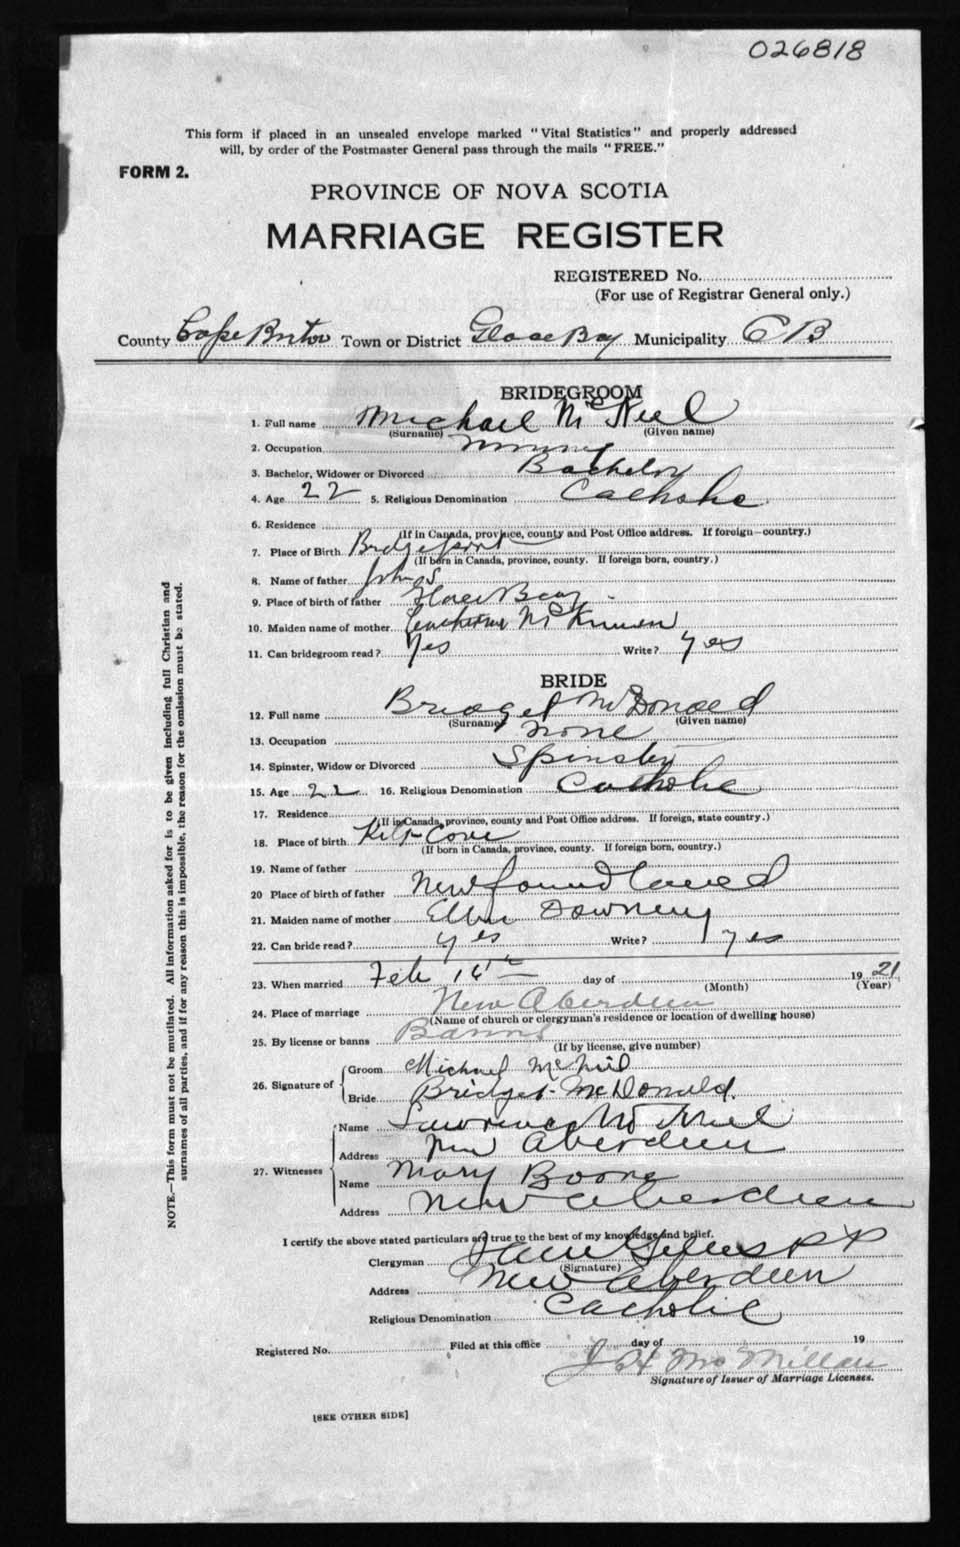 026818
This form if placed in an unsealed envelope marked "Vital Statistics" and properly addressed
will, by order of the Postmaster General pass through the mails "FREE."
FORM 2.
PROVINCE OF NOVA SCOTIA
MARRIAGE REGISTER
REGISTERED No.
(For use of Registrar General only.)
County Cape Breton Town or District Glace Bay Municipality CB
BRIDEGROOM
1. Full name Michael McNeil
(Surname) (Given name)
2. Occupation
3. Bachelor, Widower or Divorced Bachelor
4. Age 22 5. Religious Denomination Catholic
6. Residence
(If in Canada, province, county and Post Office address. If foreign—country.)
7. Place of Birth Bridgeport
(If born in Canada, province, county. If foreign born, country.)
8. Name of father John S
9. Place of birth of father Glace Bay
10. Maiden name of mother McKinnon
11. Can bridegroom read? Yes Write? yes
BRIDE
12. Full name Bridget McDonald
(Surname) (Given name)
13. Occupation none
14. Spinster, Widow or Divorced Spinster
15. Age 22 16. Religious Denomination Catholic
17. Residence
(If in Canada, province, county and Post Office address. If foreign, state country.)
18. Place of birth Cove
(If born in Canada, province, county. If foreign born, country.)
19. Name of father
20 Place of birth of father Newfoundland
21. Maiden name of mother Ellen Downey
22. Can bride read? yes Write? yes
23. When married Feb 16th day of 1921
(Month) (Year)
24. Place of marriage New Aberdeen
(Name of church or clergyman's residence or location of dwelling house)
25. By license or banns Banns
(If by license, give number)
26. Signature of
Groom Michael McNeil
Bride Bridget McDonald.
27. Witnesses
Name Lawrence McNeil
Address New Aberdeen
Name Mary Boone
Address New Aberdeen
I certify the above stated particulars are true to the best of my knowledge and belief.
Clergyman P P
(Signature)
Address New Aberdeen
Religious Denomination Catholic
Registered No. Filed at this office day of 19
J H McMillan
Signature of Issuer of Marriage Licenses.
[SEE OTHER SIDE]
NOTE.—This form must not be mutilated. All information asked for is to be given including full Christian and
surnames of all parties, and if for any reason this is impossible, the reason for the omission must be stated.